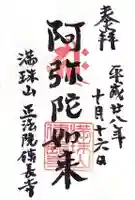 奉拝
平成廿八年
十月十六日
阿弥陀如来
満珠山 正法院 領長寺